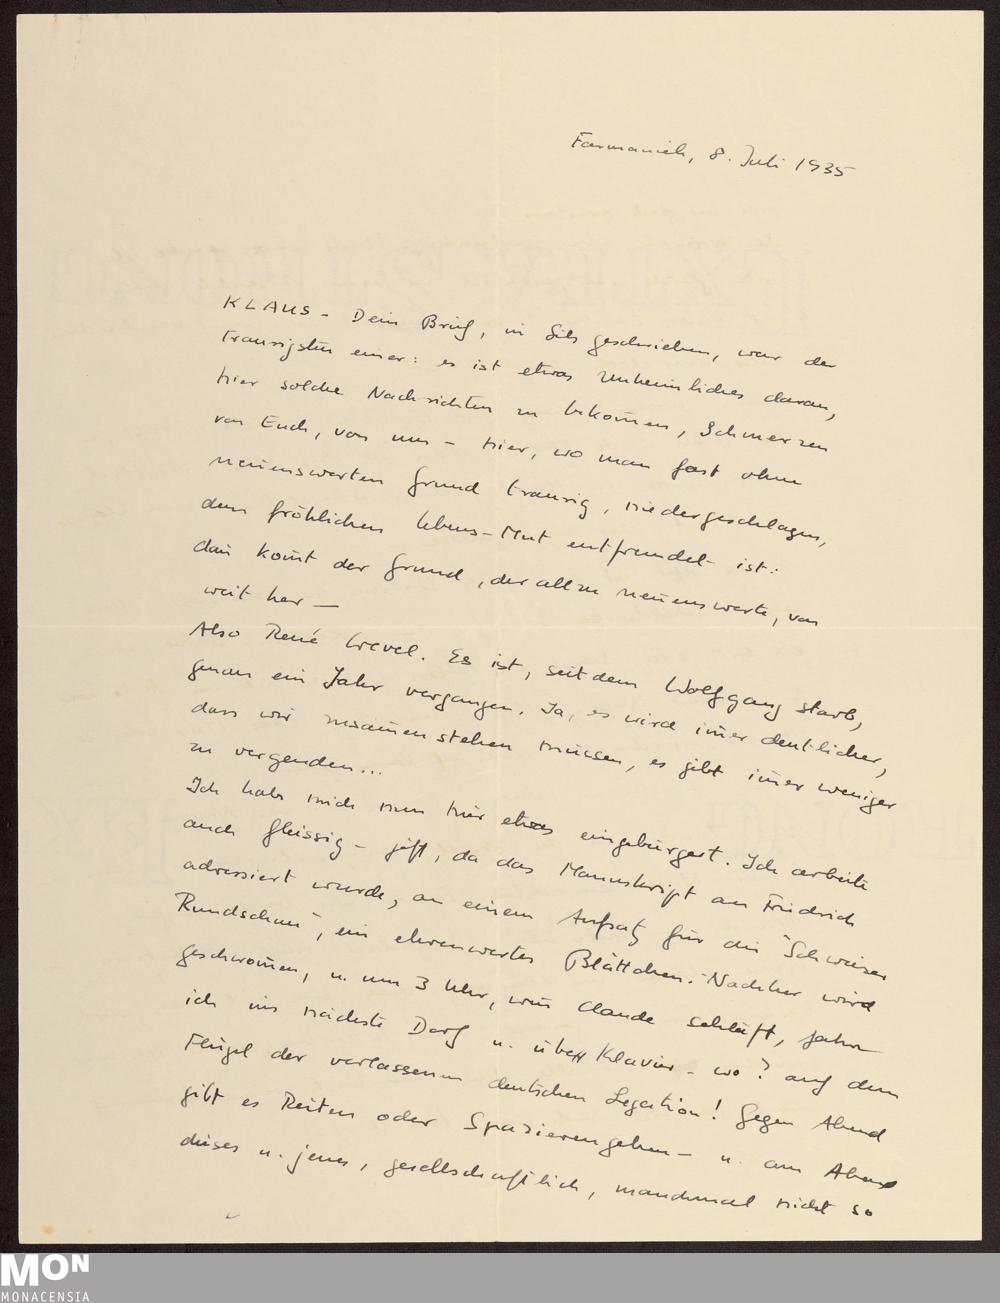 Farmanieh, 8. Juli 1935
KLAUS – Dein Brief, in Sils geschrieben, war der
traurigsten einer: es ist etwas Unheimliches daran,
hier solche Nachrichten zu bekom̄en, Schmerzen
von Euch, von uns – hier, wo man fast ohne
nen̄enswerten Grund traurig, niedergeschlagen,
dem fröhlichen Lebens-Mut entfremdet ist:
dan̄ kom̄t der Grund, der allzu nen̄enswerte, von
weit her —
Also René Crevel. Es ist, seitdem Wolfgang starb,
genau ein Jahr vergangen. Ja, es wird im̄er deutlicher,
dass wir zusam̄enstehen müssen, es gibt im̄er weniger
zu vergeuden...
Ich habe mich nun hier etwas eingebürgert. Ich arbeite
auch fleissig – jetzt, da das Manuskript an Friedrich
adressiert wurde, an einem Aufsatz für die "Schweizer
Rundschau", ein ehrenwertes Blättchen. – Nachher wird
geschwom̄en, u. um 3 Uhr, wen̄ Claude schläft, fahre
ich ins nächste Dorf u. übe Klavier – wo? auf dem
Flügel der verlassenen deutschen Legation! Gegen Abend
gibt es Reiten oder Spazierengehen – u. am Abend
dieses u. jenes, gesellschaftlich, manchmal nicht so
MON
MONACENSIA